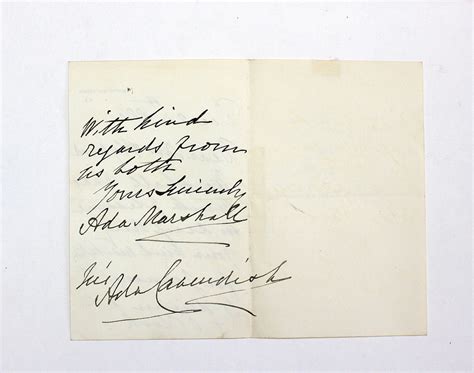 With kind
regards from
us both
Yours Sincerely
Ada Marshall
Ada Cavendish